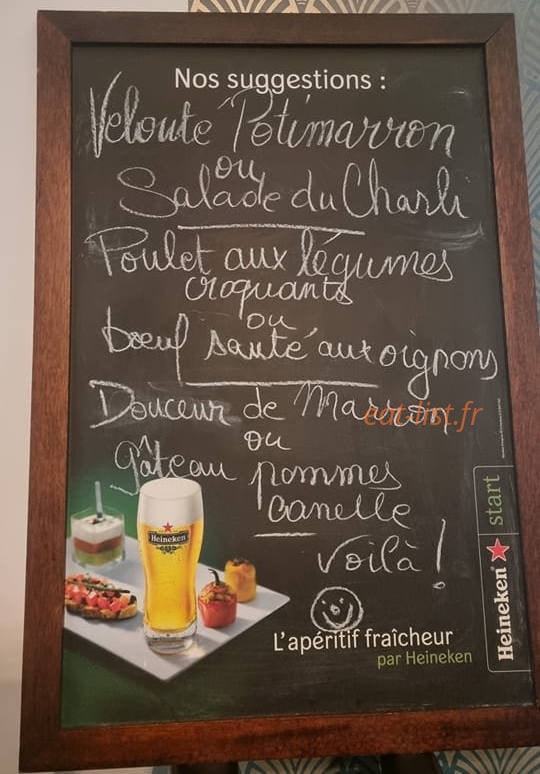 Nos suggestions :
Velouté Potimarron
ou
Salade du Charli
Poulet aux légumes
croquants
ou
boeuf sauté aux oignons
Douceur de Marron
eat-list.fr
ou
Gâteau pommes
canelle
Voilà !
Heineken
L'apéritif fraîcheur
par Heineken
Heineken start